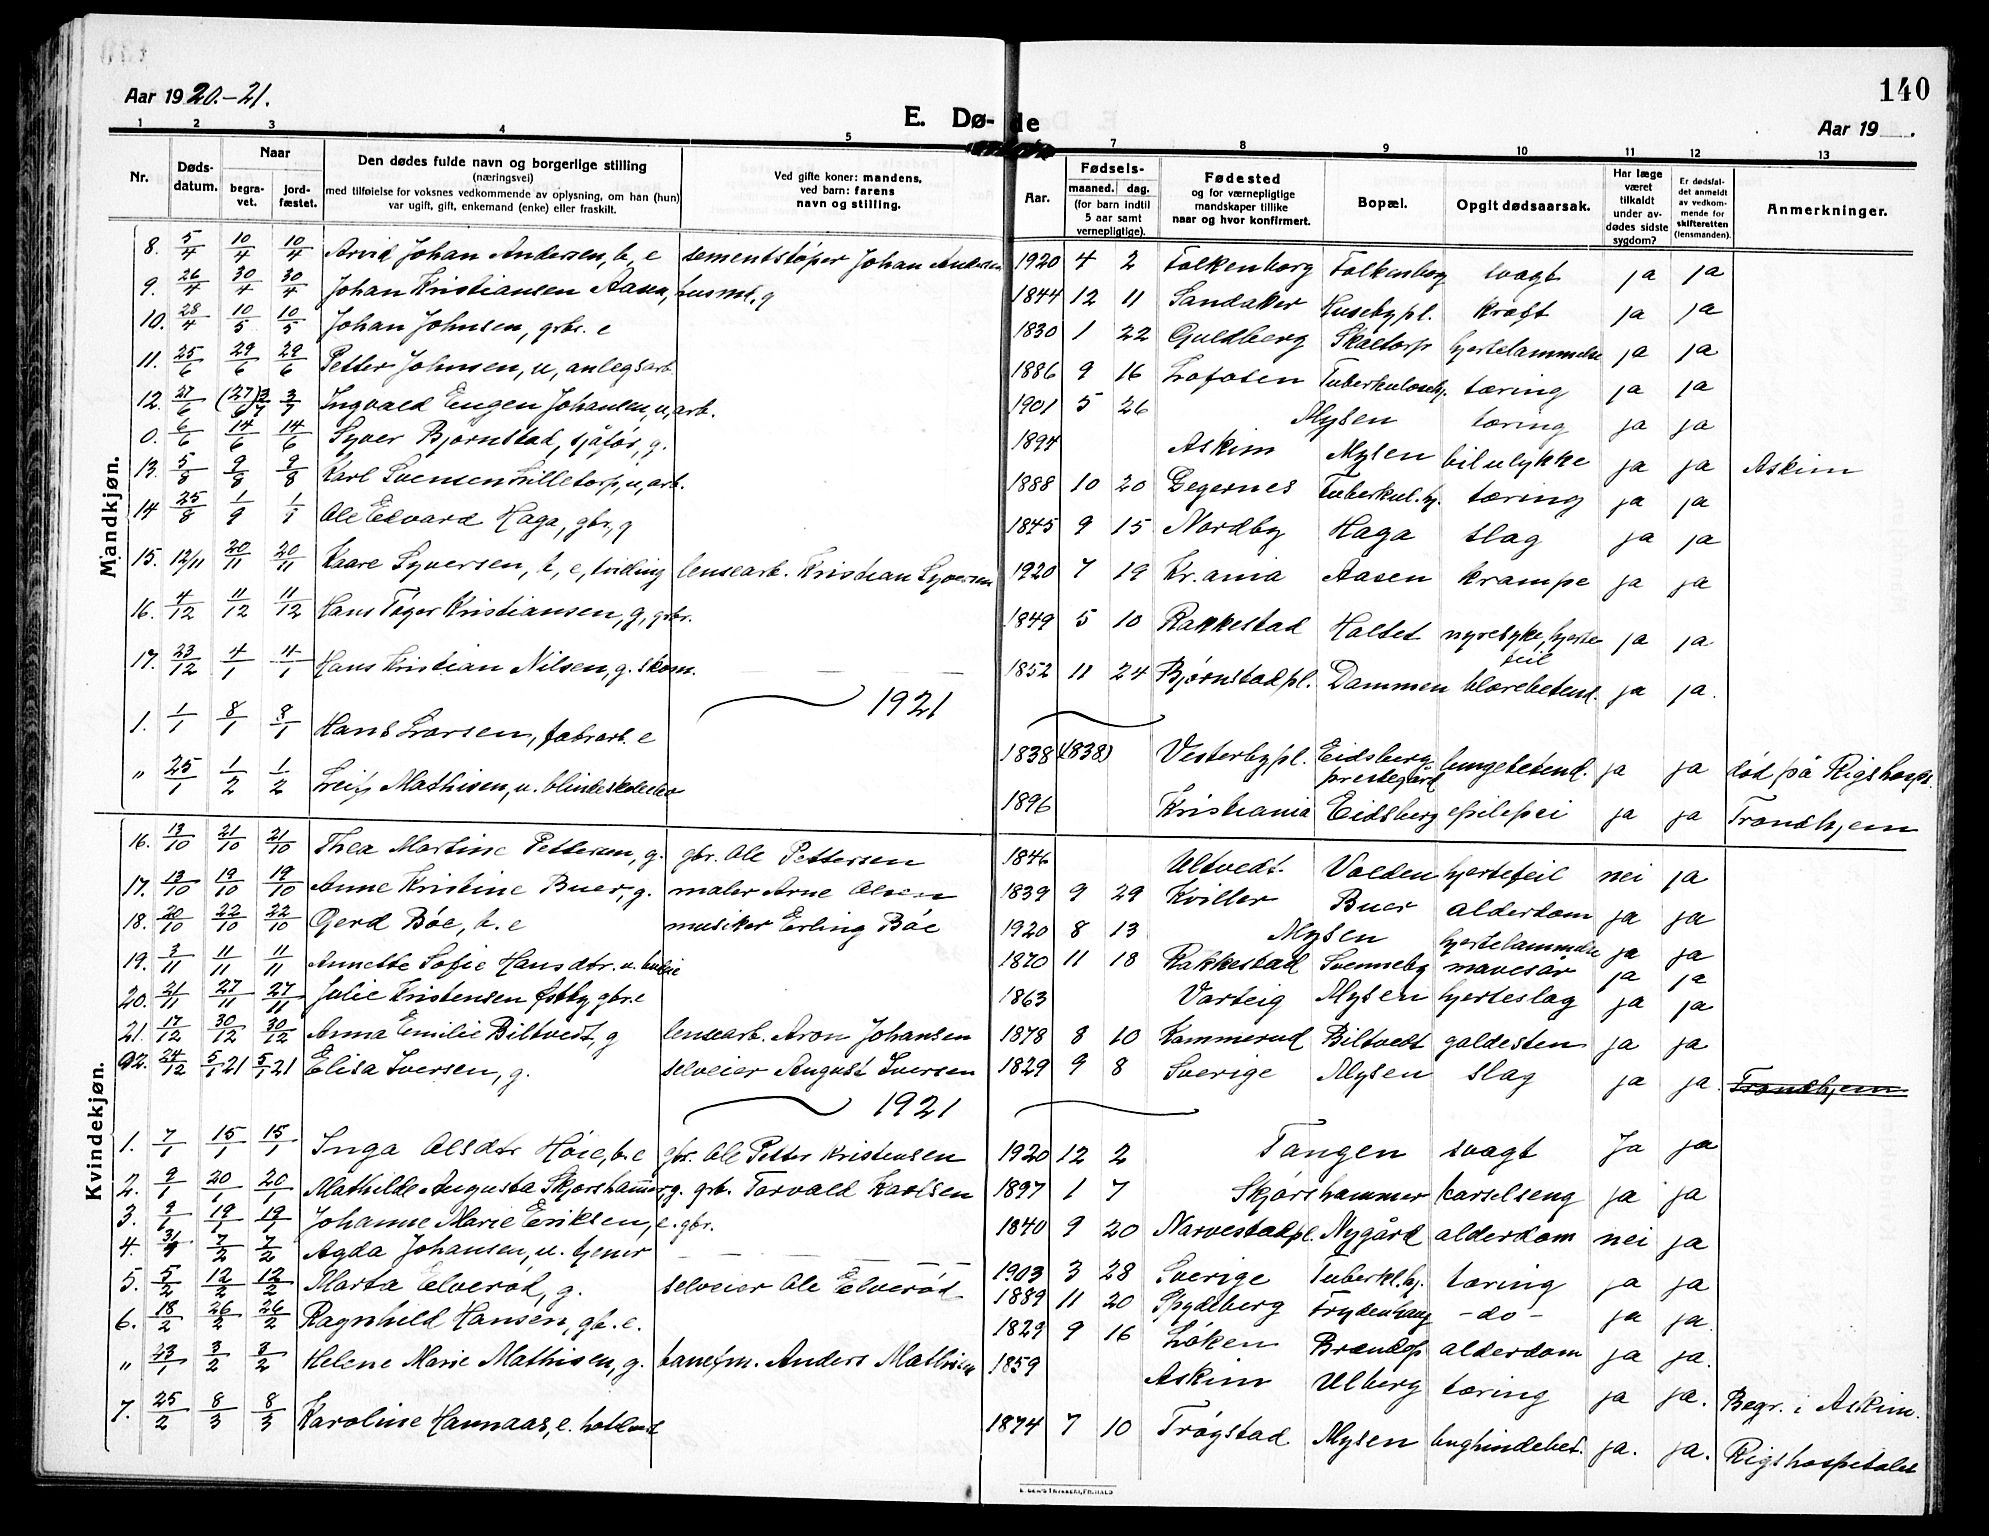 140
Aar 1920.-21.
E. Dø- de
Aar 19 .
1 2 3 4 5 7 8 9 10 11 12 13
Nr.
Døds-datum.
Naar
begra-vet.
jord-fæstet.
Den dødes fulde navn og borgerlige stilling
(næringsvei)
med tilføielse for voksnes vedkommende av oplysning, om han (hun)
var ugift, gift, enkemand (enke) eller fraskilt.
Ved gifte koner: mandens,
ved barn: farens
navn og stilling.
Aar.
Fødsels-
maaned. dag.
(for barn indtil
5 aar samt
vernepligtige).
Fødested
og for værnepligtige
mandskaper tillike
naar og hvor konfirmert.
Bopæl.
Opgit dødsaarsak.
Har læge
været
tilkaldt
under av-
dødes sidste
sygdom?
Er dødsfal-
det anmeldt
av vedkom-
mende for
skifteretten
(lensmanden).
Anmerkninger.
Mandkjøn.
8. 5/4 10/4 10/4 Arvid Johan Andersen, b, e sementstøper Johan Andersen 1920 4 2 Folkenborg Folkenborg svagt ja ja
9. 26/4 30/4 30/4 Johan Kristiansen Aasen, husmt, g 1844 12 11 Sandaker Husebypl. kræft ja ja
10. 28/4 10/5 10/5 Johan Johnsen, gbr. e 1830 1 22 Guldberg Skaltorp hjertelammelse ja ja
11. 25/6 29/6 29/6 Petter Johnsen, u, anlegsarb. 1886 9 16 Lofoten Tuberkulosehj. tæring ja ja
12. 27/6 (27/6) 3/7 3/7 Ingvald Eugen Johansen, u, arb. 1901 5 26 Mysen tæring ja ja
0. 6/6 14/6 14/6 Syver Bjørnstad, sjåfør, g. 1894 Askim Mysen bilulykke ja ja Askim
13. 5/8 9/8 9/8 Karl Svensen Lilletorp, u, arb. 1888 10 20 Gegernes Tuberkul.hj. tæring ja ja
14 25/8 1/9 1/1 Ole Edvard Haga, gbr, g 1845 9 15 Nordby Haga slag ja ja
15. 12/11 20/11 20/11 Kaare Syversen, b, e, tvilling lensearb. Kristian Syversen 1920 7 19 Kr.ania Aasen krampe ja ja
16. 4/12 11/12 11/12 Hans Tøger Kristiansen, g, gbr. 1849 5 10 Rakkestad Holtet nyresyke, hjerte feil ja ja
17. 23/12 4/1 4/1 Hans Kristian Nilsen, g. skom. 1852 11 24 Bjørnstadpl. Dammen blærebetend. ja ja.
1921
1. 1/1 8/1 8/1 Hans Larsen, fabrarb. e 1838 (1838) Vesterbypl. Eidsberg prestegård lungebetend. ja ja død på Rigshosp.
" 25/1 1/2 1/2 Leif Mathisen, u. blindeskoleelev 1896 Kristiania Eidsberg epilepsi ja ja Trondhjem
Kvindekjøn.
16. 13/10 21/10 21/10 Thea Martine Pettersen, g. gbr. Ole Pettersen 1846 Ultvedt. Volden hjertefeil nei ja
17. 13/10 19/10 19/10 Anne Kristine Buer, g. maler Arne Olsen 1839 9 29 Kviller Buer alderdom ja ja
18. 20/10 22/10 22/10 Gerd Bøe, b. e musiker Erling Bøe 1920 8 13 Mysen hjertelammelse ja ja
19. 3/11 11/11 11/11 Annette Sofie Hansdtr. u. budeie 1870 11 18 Rakkestad Svenneby mavesår ja ja
20. 21/11 27/11 27/11 Julie Kristensen Østby gbr.e 1863 Varteig Mysen hjerteslag ja ja
21. 17/12 30/12 30/12 Anna Emilie Biltvedt, g lensearb. Aron Johansen 1878 8 10 Kammerud Biltvedt galdesten ja ja
22. 24/12 5/1 21 5/1 21 Elisa Iversen, g. selveier August Iversen 1829 9 8 Sverige Mysen slag ja ja. Trondhjem
1921
1. 7/1 15/1 15/1 Inga Olsdtr Høie, b. e gbr. Ole Petter Kristensen 1920 12 2 Tangen svagt Ja ja
2. 9/1 20/1 20/1 Mathilde Augusta Skjørshammer g. gbr. Torvald Karlsen 1897 1 7 Skjørshammer barselseng ja ja
3. 9/1 19/1 19/1 Johanne Marie Eriksen, e. gbr. 1840 9 20 Narvestadpl. Nygård alderdom nei ja
4. 31/1 7/2 7/2 Agda Johansen, u. tjener 1903 3 28 Sverige Tuberkl.hj. tæring ja ja
5. 5/2 12/2 12/2 Marta Elverød, g. selveier Ole Elverød 1889 11 20 Spydeberg Frydenhaug -do- ja ja.
6. 18/2 26/2 26/2 Ragnhild Hansen, gb. e. 1829 9 16 Løken Brandsp alderdom ja ja.
" 23/1 3/2 3/2 Helene Marie Mathisen, g. banefm. Anders Mathisen 1859 Askim Ulberg tæring ja ja. Begr. i Askim.
7. 25/2 8/3 8/3 Karoline Hannaas, e. 1874 7 10 Trøgstad Mysen bughindebet. ja. ja. Rigshospitalet